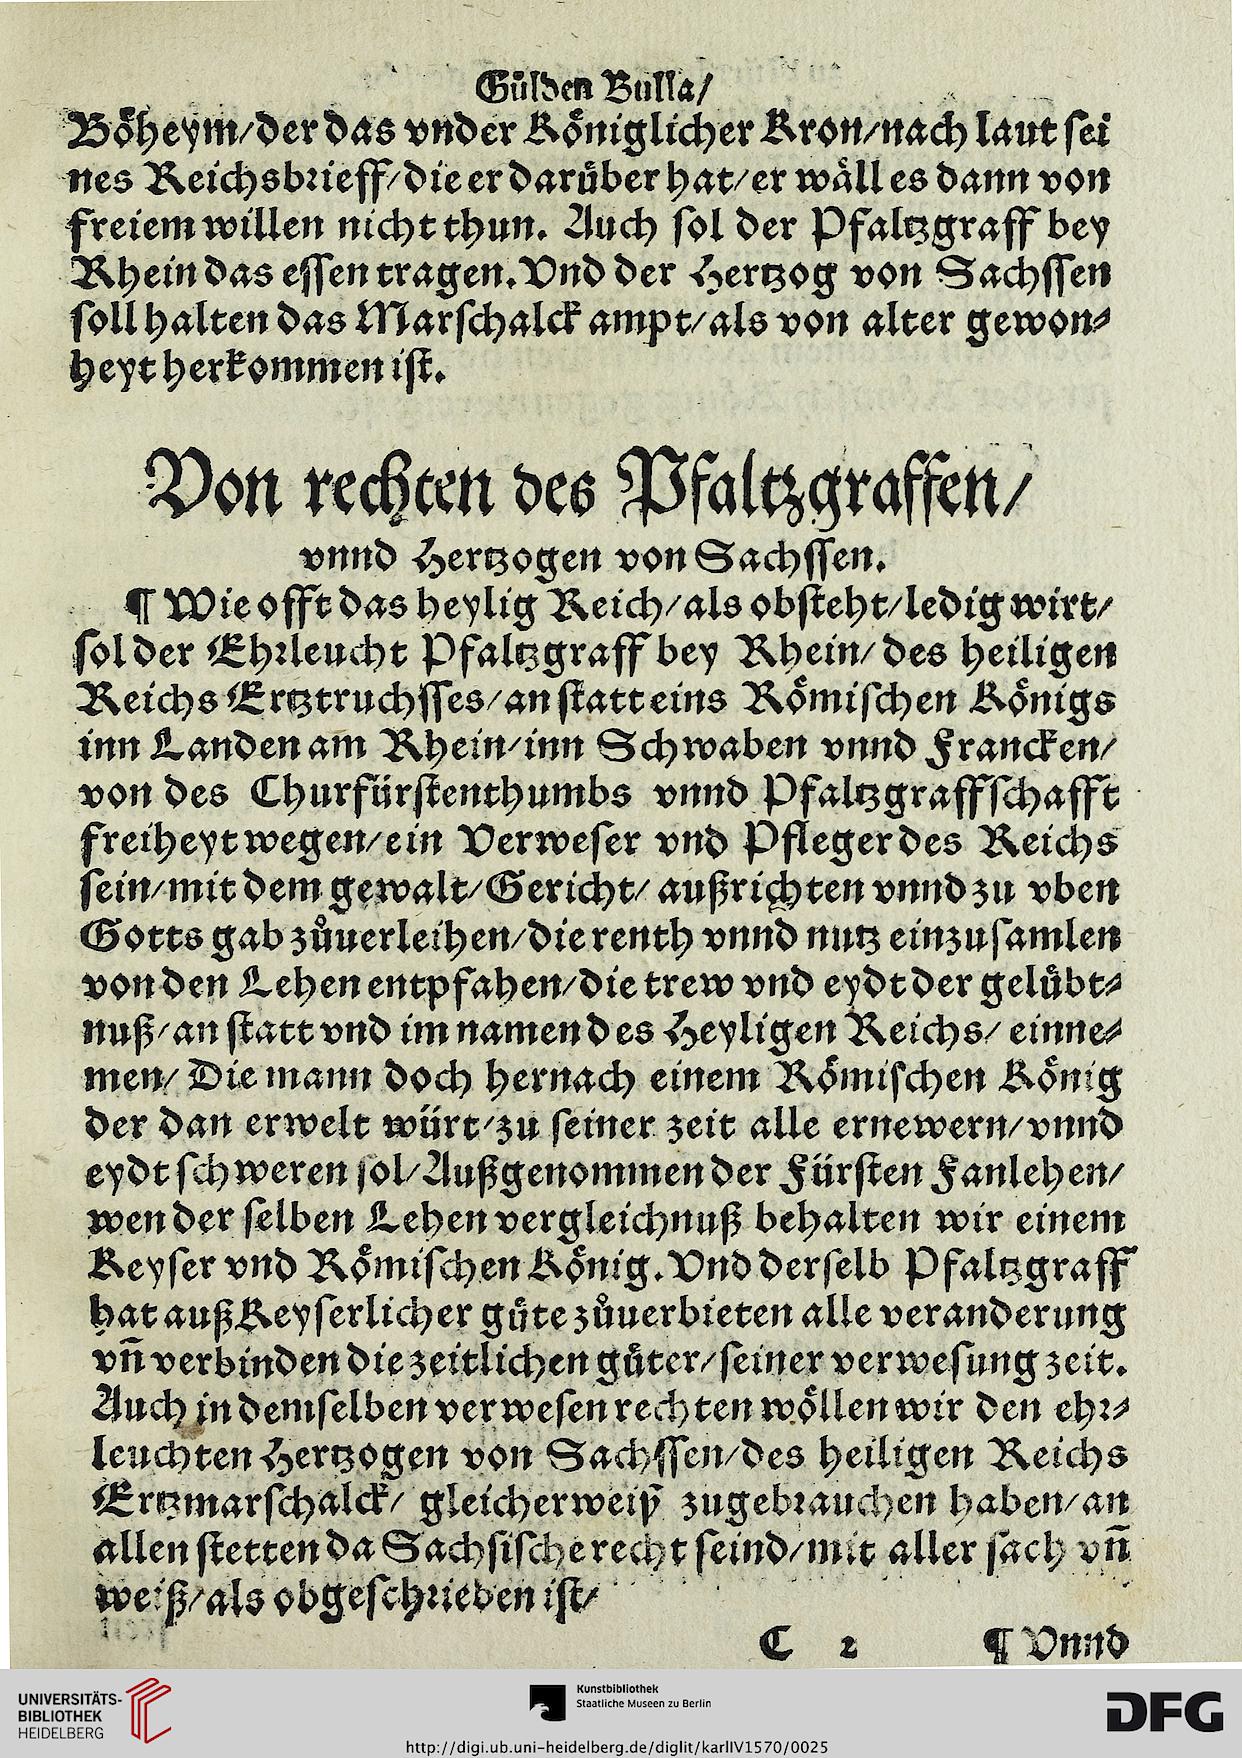 Gülden Bulla/
Böheym/der das vnder Königlicher Kron/nach laut sei
nes Reichsbrieff/die er darüber hat/er wäll es dann von
freiem willen nicht thun. Auch sol der Pfaltzgraff bey
Rhein das essen tragen. Vnd der Hertzog von Sachssen
soll halten das Marschalck ampt/als von alter gewon⸗
heyt herkommen ist.
Von rechten des Pfaltzgraffen/
vnnd Hertzogen von Sachssen.
¶ Wie offt das heylig Reich/als obsteht/ledig wirt/
sol der Ehrleucht Pfaltzgraff bey Rhein/des heiligen
Reichs Ertztruchsses/an statt eins Römischen Königs
inn Landen am Rhein/inn Schwaben vnnd Francken/
von des Churfürstenthumbs vnnd Pfaltzgraffschafft
freiheyt wegen/ein Verweser vnd Pfleger des Reichs
sein/mit dem gewalt/Gericht/ außrichten vnnd zu vben
Gotts gab zůuerleihen/die renth vnnd nutz einzusamlen
von den Lehen entpfahen/die trew vnd eydt der gelübt⸗
nuß/an statt vnd im namen des Heyligen Reichs/ einne⸗
men/ Die mann doch hernach einem Römischen König
der dan erwelt würt/zu seiner zeit alle ernewern/vnnd
eydt schweren sol/Außgenommen der Fürsten Fanlehen/
wen der selben Lehen vergleichnuß behalten wir einem
Keyser vnd Römischen König. Vnd derselb Pfaltzgraff
hat auß Keyserlicher güte zůuerbieten alle veranderung
vñ verbinden die zeitlichen güter/seiner verwesung zeit.
Auch in demselben verwesen rechten wöllen wir den ehr⸗
leuchten Hertzogen von Sachssen/des heiligen Reichs
Ertzmarschalck/ gleicherweiß zugebrauchen haben/an
allen stetten da Sachsische recht seind/mit aller sach vñ
weiß/als obgeschrieben ist/
C 2 ¶ Vnnd
UNIVERSITÄTS-
BIBLIOTHEK
HEIDELBERG
Kunstbibliothek
Staatliche Museen zu Berlin
DFG
http://digi.ub.uni-heidelberg.de/diglit/karlIV1570/0025